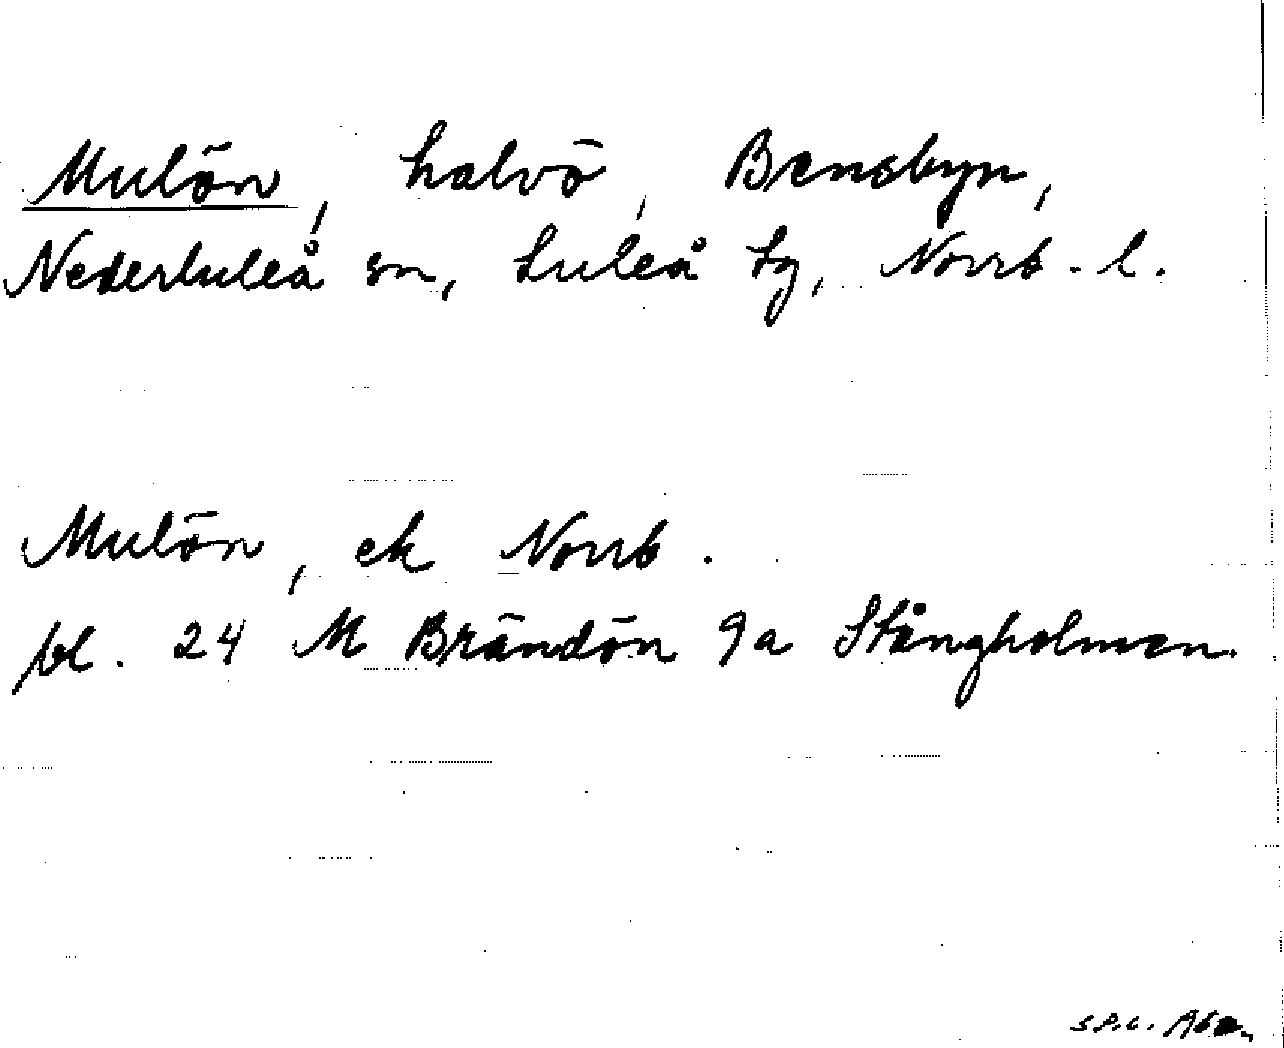 Mulön, halvö, Bensbyn,
Nederluleå sn, Luleå tg, Norrb. l.
Mulön, ek Norrb.
bl. 24 M Brändön 9a Stångholmen.